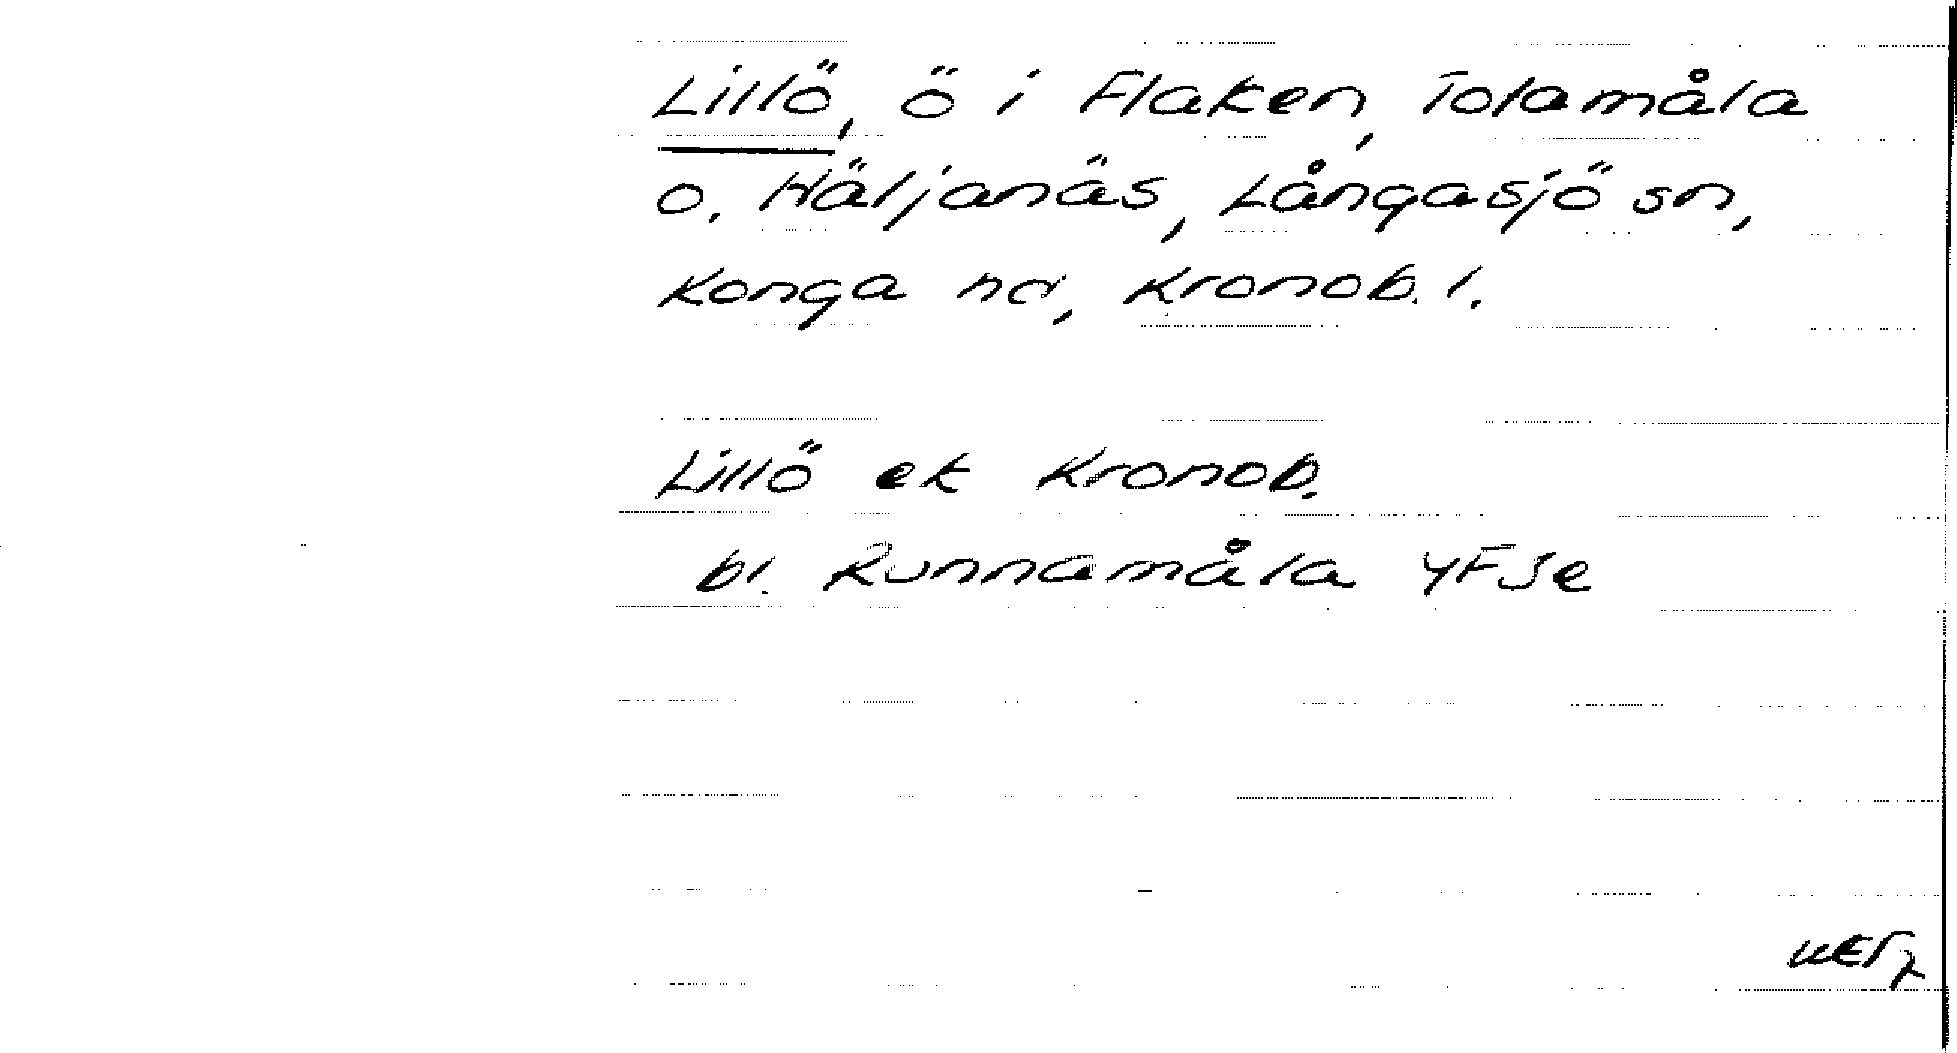 Lillö, ö i Flaken, Tolamåla
o. Häljanäs, Långasjö sn,
Konga hd, Kronob. l.
Lillö ek Kronob.
bl. Runnamåla YF5e